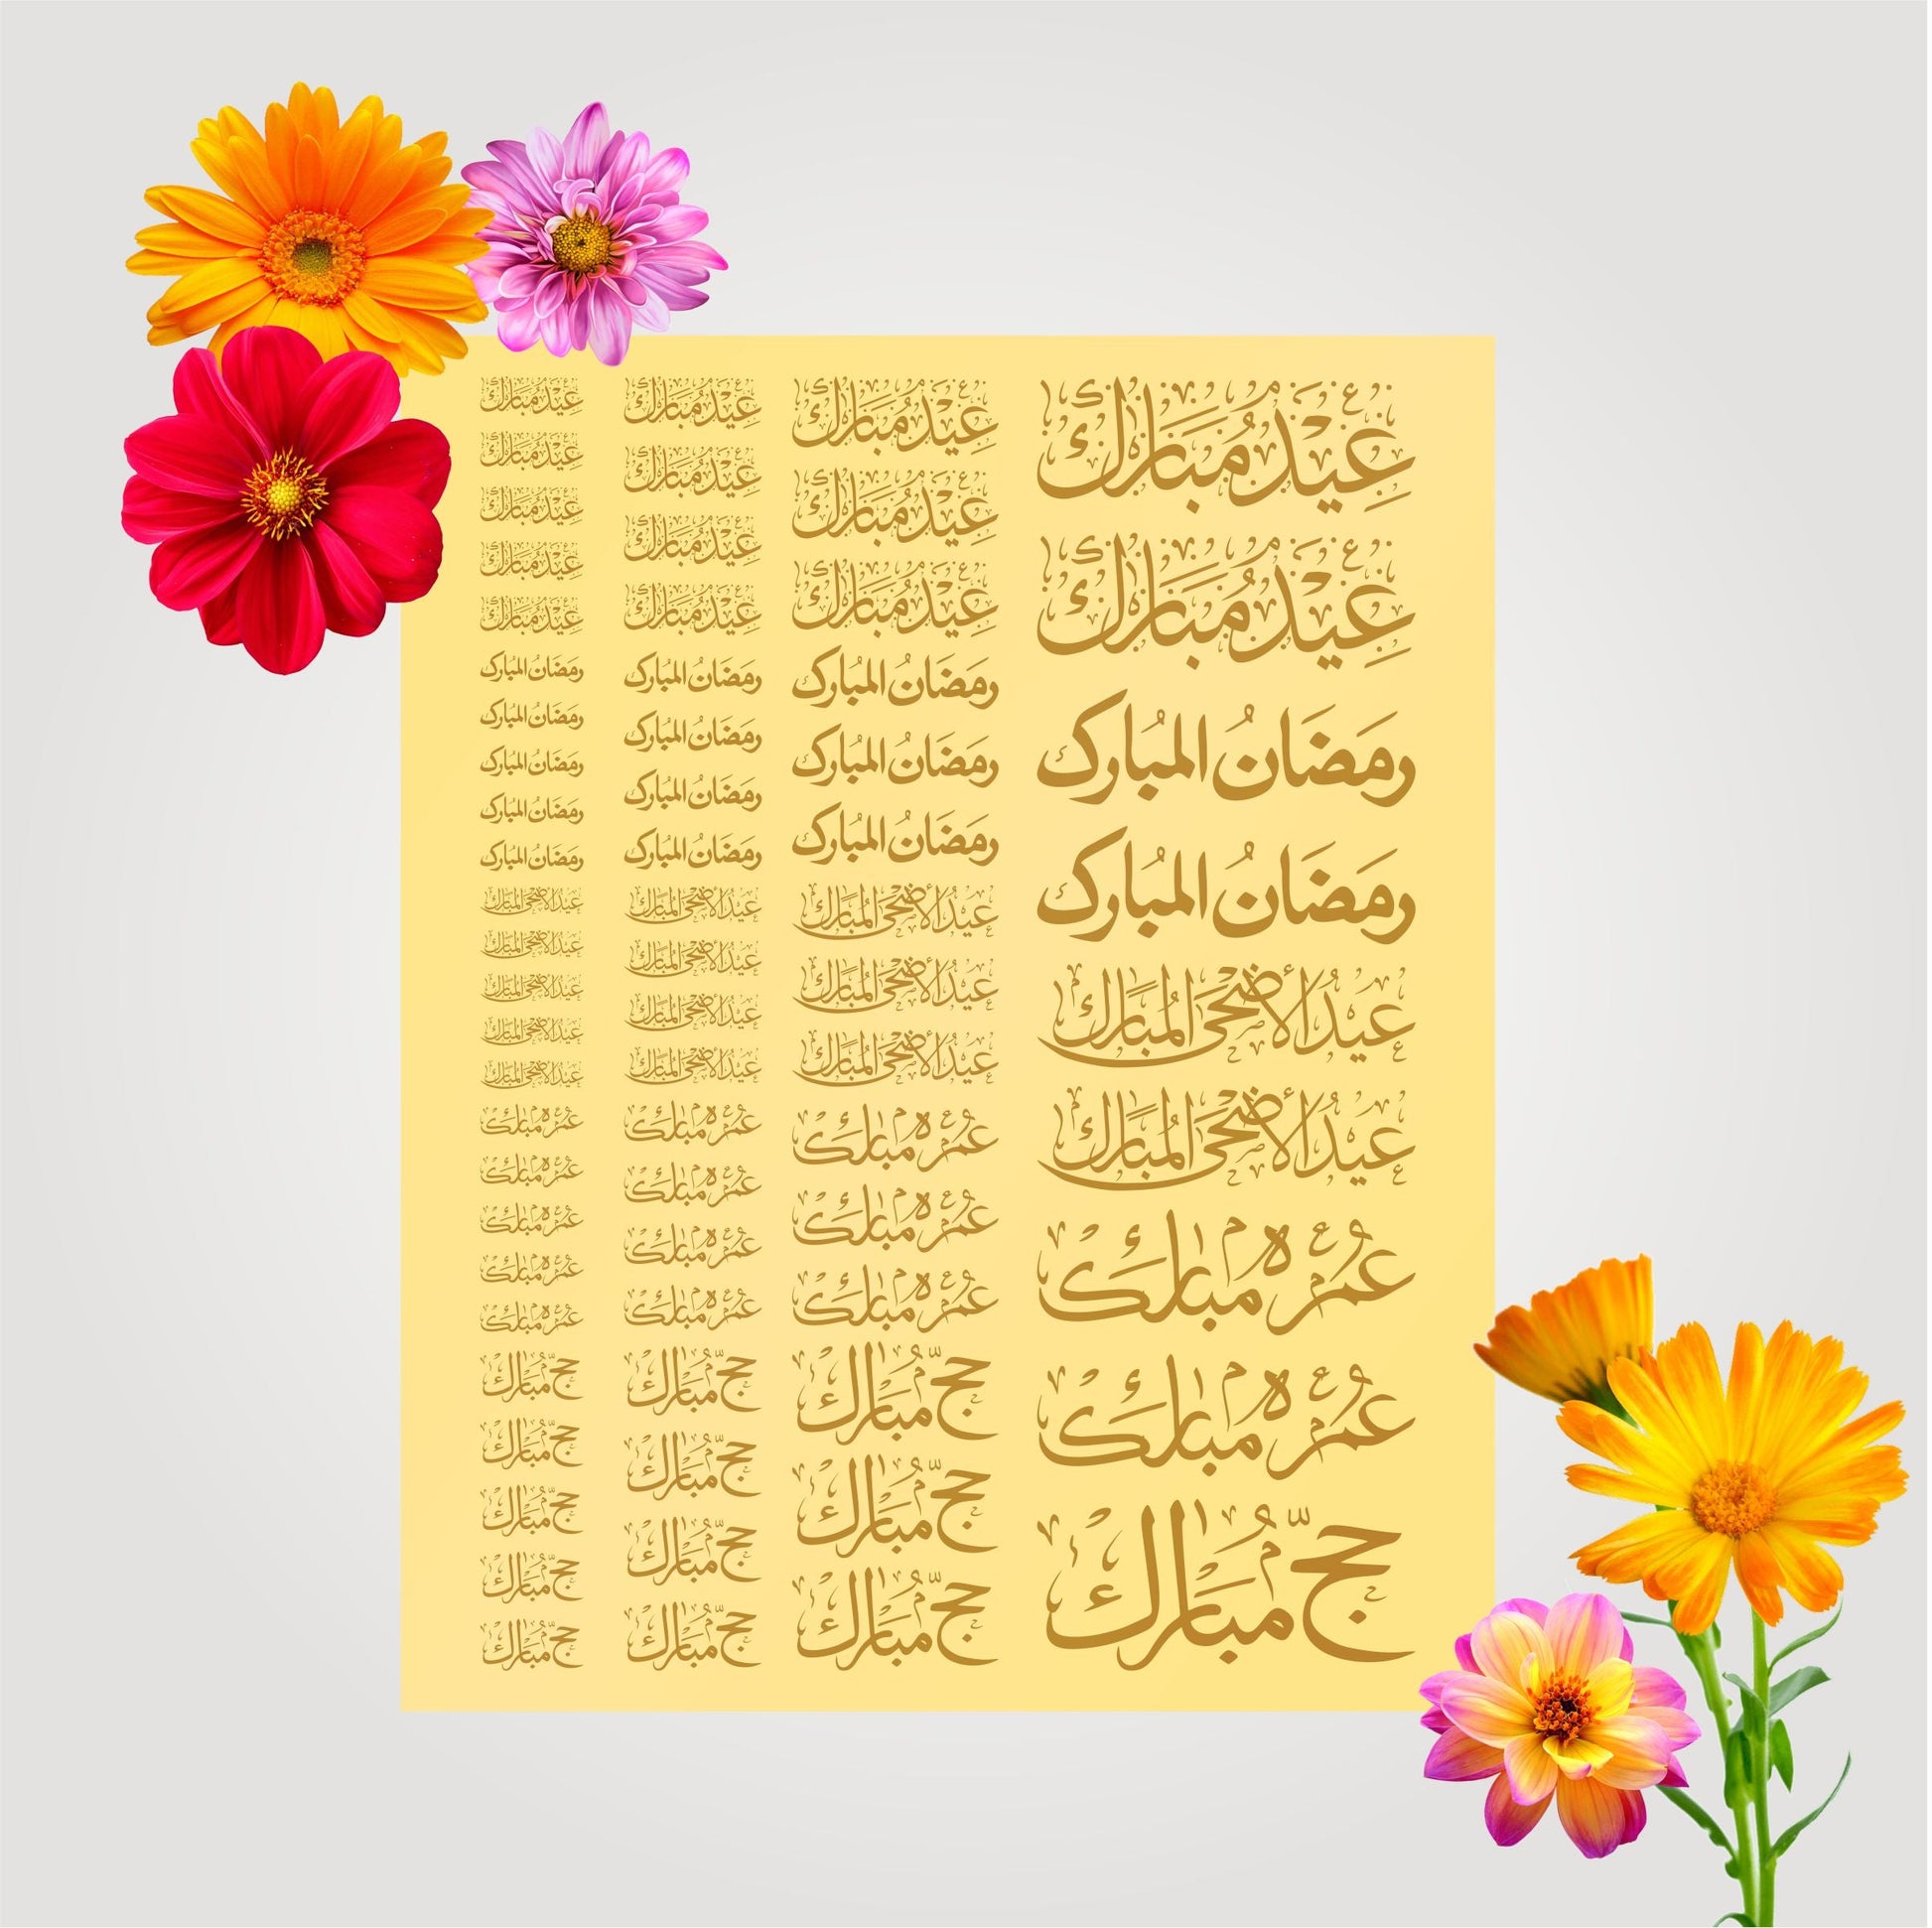 عِيْد مُبَارَك
عِيْد مُبَارَك
رمَضَانُ المُبارک
رمَضَانُ المُبارک
عيدُ الأضحى المُبَارَك
عيدُ الأضحى المُبَارَك
عُمرْه مبارك
عُمرْه مبارك
حجّ مُبَارَك
عِيْد مُبَارَك
عِيْد مُبَارَك
عِيْد مُبَارَك
رمَضَانُ المُبارک
رمَضَانُ المُبارک
رمَضَانُ المُبارک
عيدُ الأضحى المُبَارَك
عيدُ الأضحى المُبَارَك
عيدُ الأضحى المُبَارَك
عُمرْه مبارك
عُمرْه مبارك
عُمرْه مبارك
حجّ مُبَارَك
حجّ مُبَارَك
حجّ مُبَارَك
عِيْد مُبَارَك
عِيْد مُبَارَك
عِيْد مُبَارَك
عِيْد مُبَارَك
رمَضَانُ المُبارک
رمَضَانُ المُبارک
رمَضَانُ المُبارک
رمَضَانُ المُبارک
عيدُ الأضحى المُبَارَك
عيدُ الأضحى المُبَارَك
عيدُ الأضحى المُبَارَك
عيدُ الأضحى المُبَارَك
عُمرْه مبارك
عُمرْه مبارك
عُمرْه مبارك
عُمرْه مبارك
حجّ مُبَارَك
حجّ مُبَارَك
حجّ مُبَارَك
حجّ مُبَارَك
عِيْد مُبَارَك
عِيْد مُبَارَك
عِيْد مُبَارَك
عِيْد مُبَارَك
عِيْد مُبَارَك
رمَضَانُ المُبارک
رمَضَانُ المُبارک
رمَضَانُ المُبارک
رمَضَانُ المُبارک
رمَضَانُ المُبارک
عيدُ الأضحى المُبَارَك
عيدُ الأضحى المُبَارَك
عيدُ الأضحى المُبَارَك
عيدُ الأضحى المُبَارَك
عيدُ الأضحى المُبَارَك
عُمرْه مبارك
عُمرْه مبارك
عُمرْه مبارك
عُمرْه مبارك
عُمرْه مبارك
حجّ مُبَارَك
حجّ مُبَارَك
حجّ مُبَارَك
حجّ مُبَارَك
حجّ مُبَارَك